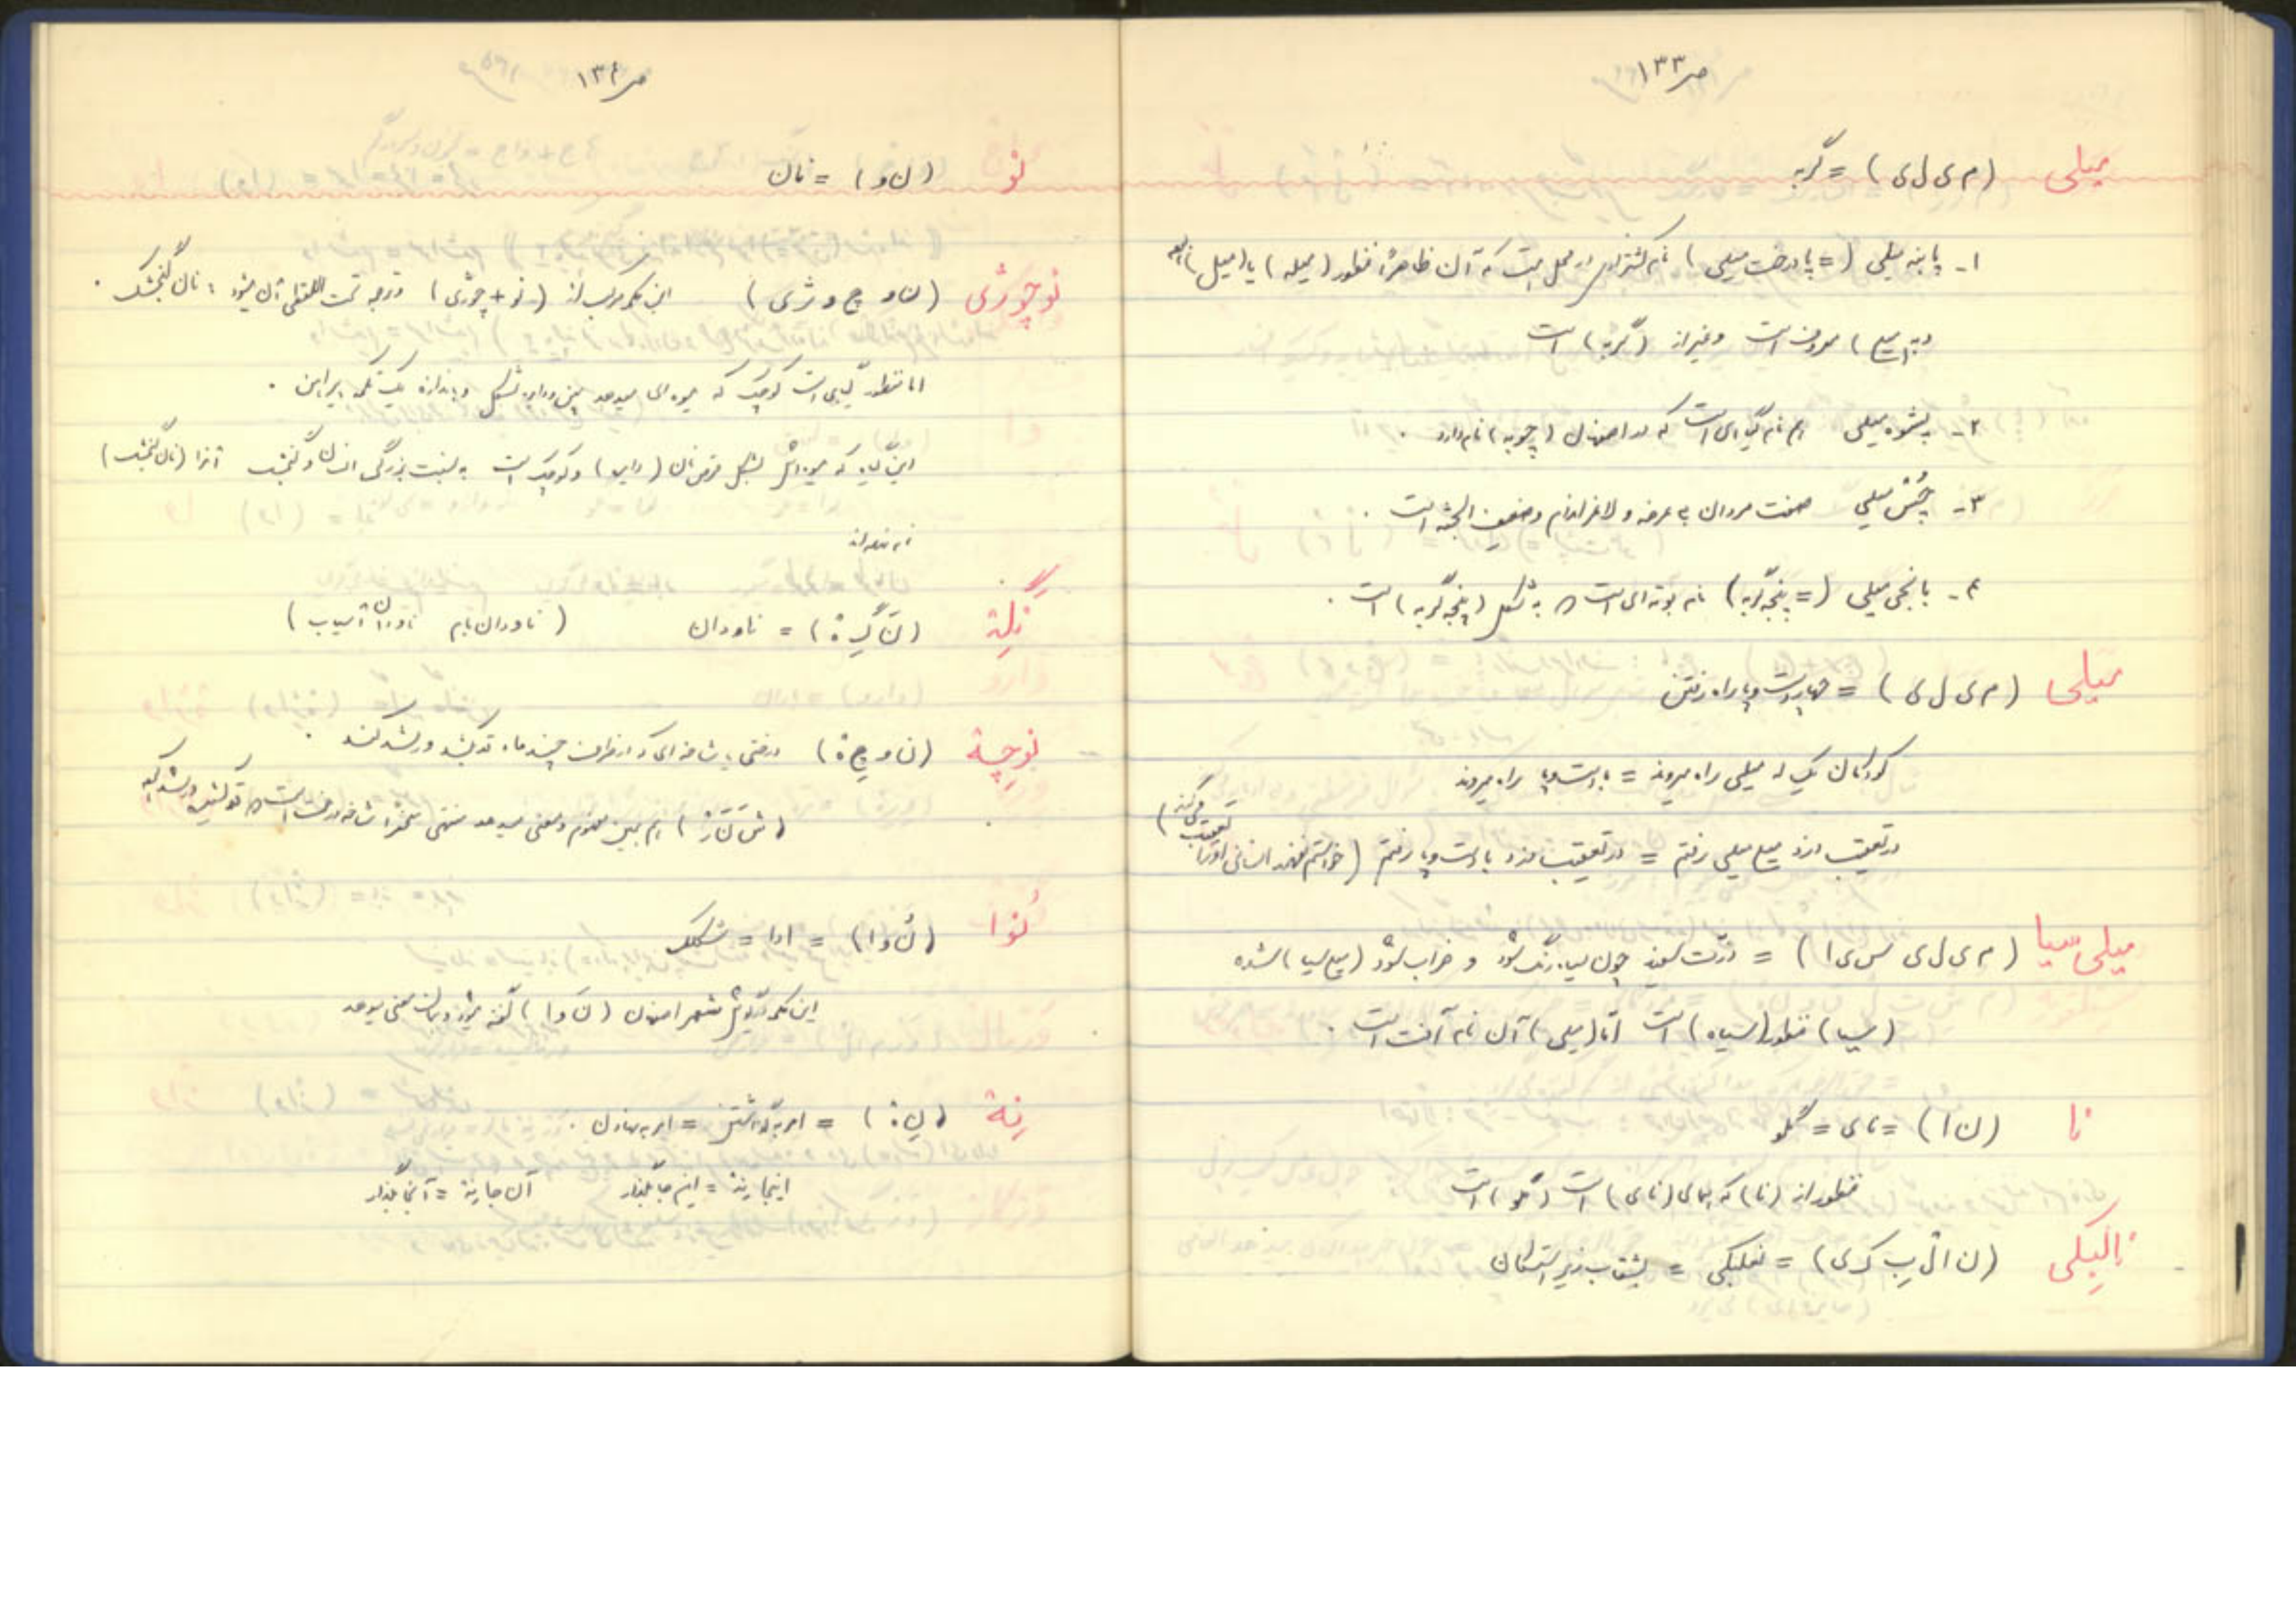 ص ۱۳۳
میلی (م ی ل ی) = گربه
۱- پابنه میلی (= پادرخت میلی) نام کشتزاری در محل است که آن ظاهراً منظور (میله) یا (میل)
معروف است و غیر از (گربه) است
۲- پشوه میلی هم نام گیاهی است که در اصفهان (چوبه) نام دارد.
۳- چُسّ میلی صفت مردان بی عرضه و لاغر اندام و ضعیف الجثه است.
۴- بانجی میلی (= پنجه گربه) نام بوته ای است که به شکل (پنجه گربه) است.
میلی (م ی ل ی) = چهار دست و پا راه رفتن
کودکان یک له میلی راه میروند = با دست و پا راه میروند
در تعقیب دزد میلی رفتم = در تعقیب دزد با دست و پا رفتم (خواستم نفهمد انسانی او را تعقیب می کند)
میلی سیا (م ی ل ی س ی ا) = ذرت سفید چون سیاه رنگ شود و خراب شود (میلی سیا) شده
(سیا) منظور (سیاه) است اما (میلی) آن نام آفت است.
نا (ن ا) = نای = گلو
منظور از (نا) که بجای (نای) است (گلو) است
نالبکی (ن ا ل ب ک ی) = نعلبکی = بشقاب زیر استکان
ص ۱۳۴
نو (ن و) = نان
نوچوژی (ن و چ و ژ ی) این کلمه مرکب از (نو + چوژی) ترجمه تحت اللفظی آن میشود : نان گنجشک.
اما منظور گیاهی است کوچک که میوه ای میدهد پهن و دایره شکل و به اندازه یک تکمه پیراهن.
این گیاه که میوه اش بشکل قرص نان (دایره) و کوچک است به نسبت بزرگی انسان و گنجشک آنرا (نان گنجشک)
نام نهاده اند
نگِلة (ن گِ لِ ة) = ناودان (ناودان بام ناودان آسیاب)
نوچِة (ن و چِ ة) درختی یا شاخه ای که در ظرف چند ماه قد بکشد و رشد کند.
هم همین مفهوم و معنی میدهد منتهی شاخه درخت است که
نُوا (نُ و ا) = ادا = شکلک
این کلمه در گویش شهر اصفهان (نَ وا) گفته میشود و همان معنی میدهد
نِة (نِ ة) = امر به گذاشتن = امر به نهادن.
اینجا نِة = اینجا بگذار آن جا نِة = آنجا بگذار